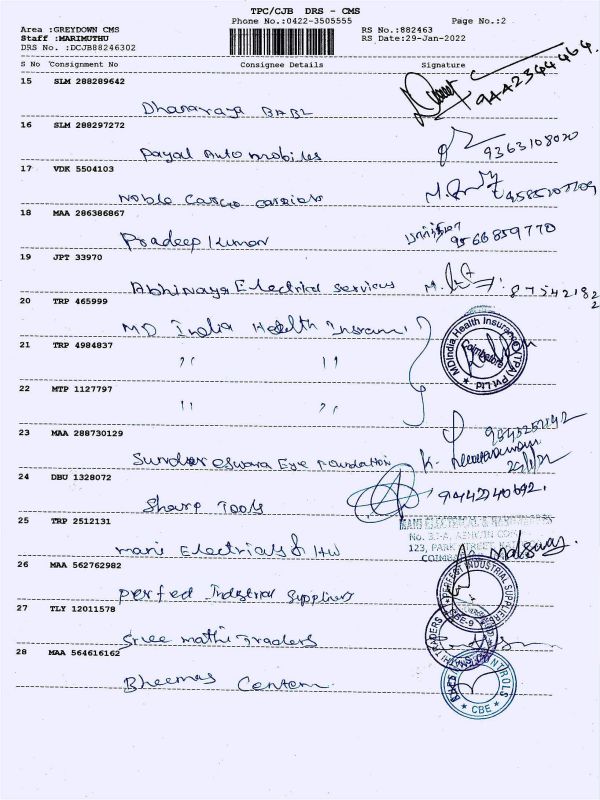 TPC/CJB DRS - CMS
Phone No.:0422-3505555 Page No.:2
Area :GREYDOWN CMS RS No.:882463
Staff :MARIMUTHU RS Date:29-Jan-2022
DRS No. :DCJB88246302
S No Consignment No Consignee Details Signature
15 SLM 288289642
Dhanaraya BABL
16 SLM 288297272
Payal Automobiles 9363108020
17 VDK 5504103
Noble Cargo carriers
18 MAA 286386867
Pradeep Kumar 9566859770
19 JPT 33970
Abhinaya Electrical services
20 TRP 465999
MD India Health Insuran
MDIndia Health Insurance (TPA) Pvt Ltd
Coimbatore
21 TRP 4984837
" "
22 MTP 1127797
" "
23 MAA 288730129
Sundareswara Eye Foundation K.
24 DBU 1328072
Sharp Tools 9442240692.
25 TRP 2512131
MANI ELECTRICAL & HARDWARES
123, PARK STREET
Mani Electricals & HW
26 MAA 562762982
perfect Industrial suppliers
PERFECT INDUSTRIAL SUPPLIERS
CBE-9
27 TLY 12011578
Sree mathi Traders
MATHI TRADERS
28 MAA 564616162
Bheemas
CONTROLS
CBE